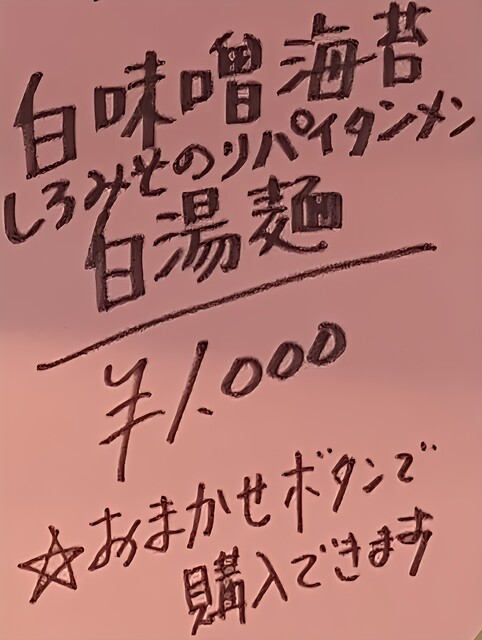 白味噌海苔
しろみそのりパイタンメン
白湯麺
¥1.000
☆おまかせボタンで
購入できます